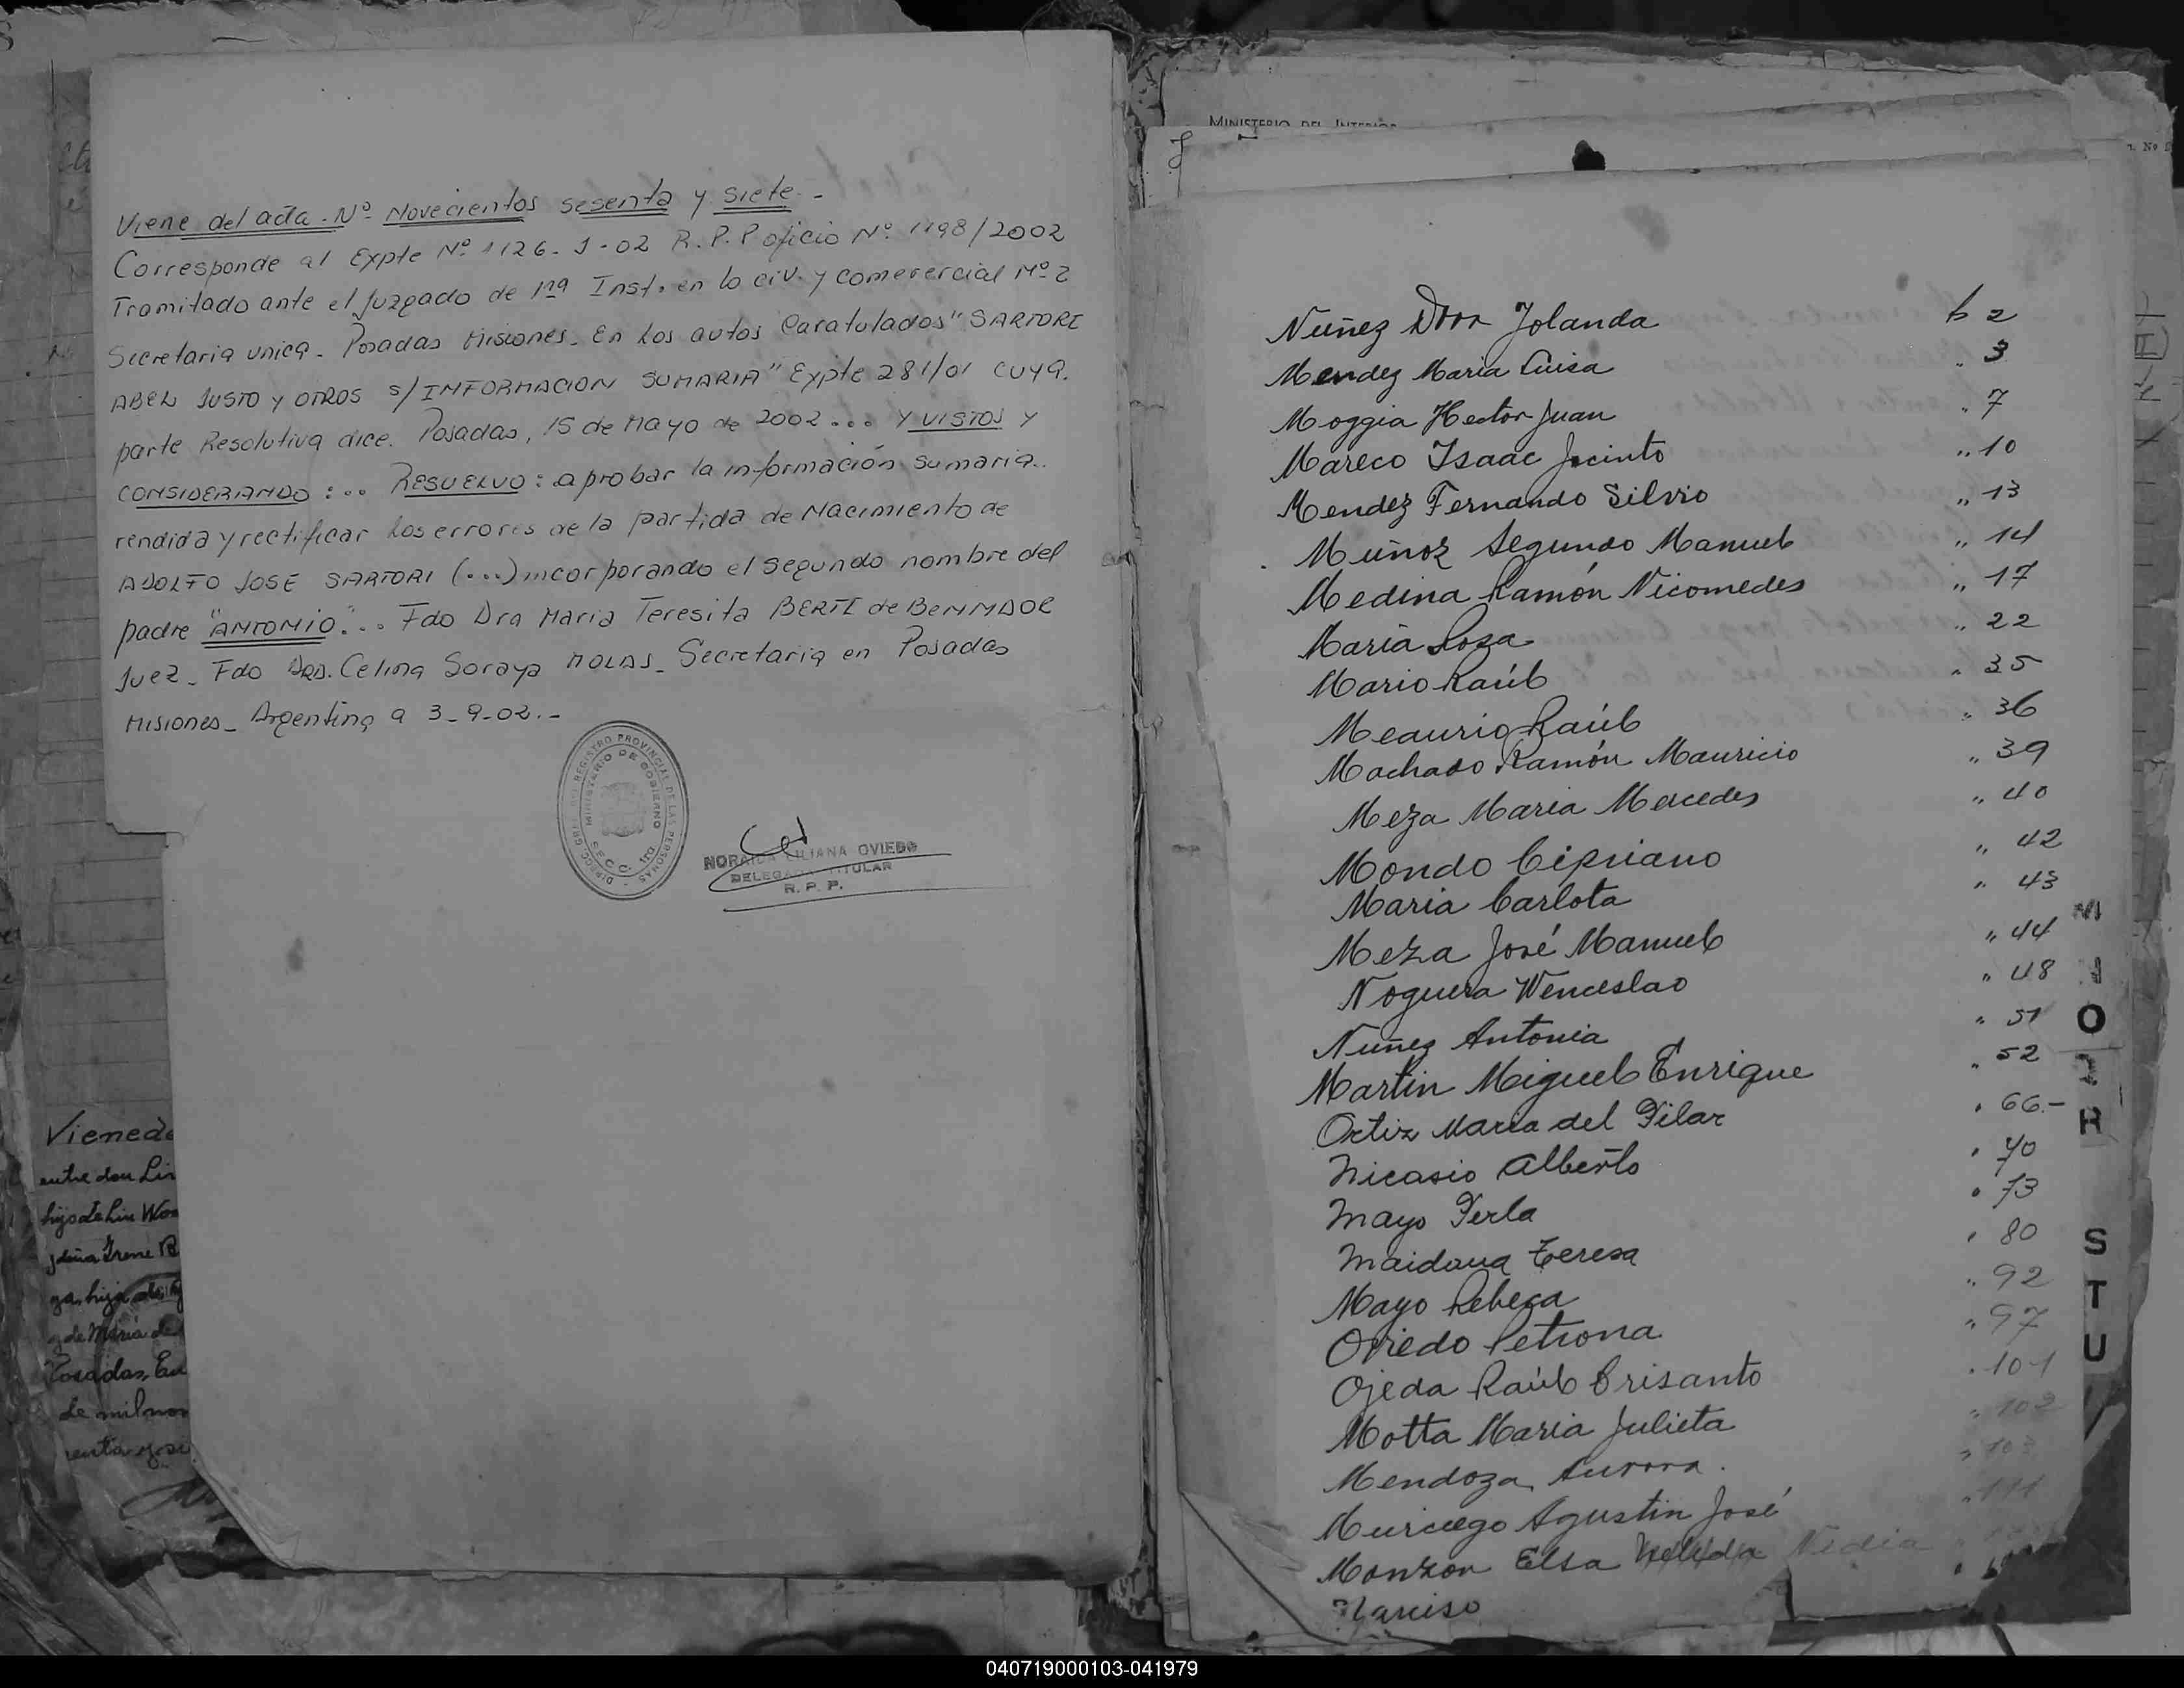 Viene del acta. Nº Novecientos sesenta y siete.-
Corresponde al Expte Nº 1126-J-02 R.P.P oficio Nº 1198/2002
Tramitado ante el Juzgado de 1ra Inst. en lo civ. y comerercial Nº 2
Secretaria unica. Posadas Misiones. En Los autos Caratulados "SARTORI
ABEL JUSTO y OTROS s/INFORMACION SUMARIA" Expte 281/01 CUYA.
parte Resolutiva dice. Posadas, 15 de Mayo de 2002... Y VISTOS y
CONSIDERANDO:... RESUELVO: aprobar la información sumaria..
rendida y rectificar Los errores de la partida de Nacimiento de
ADOLFO JOSE SARTORI (...) incorporando el segundo nombre del
padre "ANTONIO"... Fdo Dra Maria Teresita BERTI de
Juez_ Fdo Dra. Celina Soraya MOLAS_ Secretaria en Posadas
Misiones_ Argentina a 3-9-02.-
DIRECC. GRAL. DEL REGISTRO PROVINCIAL DE LAS PERSONAS
MINISTERIO DE GOBIERNO
SECC. 1ra
NORAIDA LILIANA OVIEDO
DELEGADA TITULAR
R. P. P.
Vienede
entre don
hijo de
y doña Irene
ga, hija de
y de María de
Posadas,
de mil nov
MINISTERIO DEL INTERIOR
Nuñez Dora Jolanda 2
Mendez Maria Luisa " 3
Moggia Hector Juan " 7
Mareco Isaac Jacinto " 10
Mendez Fernando Silvio " 13
Muñoz Segundo Manuel " 14
Medina Ramón Nicomedes " 17
Maria Rosa " 22
Mario Raúl " 35
Meaurio Raúl " 36
Machado Ramón Mauricio " 39
Meza Maria Mercedes " 40
Mondo Cipriano " 42
Maria Carlota " 43
Meza José Manuel " 44
Noguera Wenceslao " 48
Nuñez Antonia " 51
Martin Miguel Enrique " 52
Ortiz Maria del Pilar " 66.-
Nicasio Alberto " 70
Mayo Perla " 73
Maidana Teresa " 80
Mayo Rebeca " 92
Oviedo Petrona " 97
Ojeda Raúl Crisanto " 101
Motta Maria Julieta " 102
Mendoza Aurora. " 103
Murciego Agustin José " 111
Monzon Elsa Nelida Nidia
Narciso
M
O
R
S
T
U
040719000103-041979